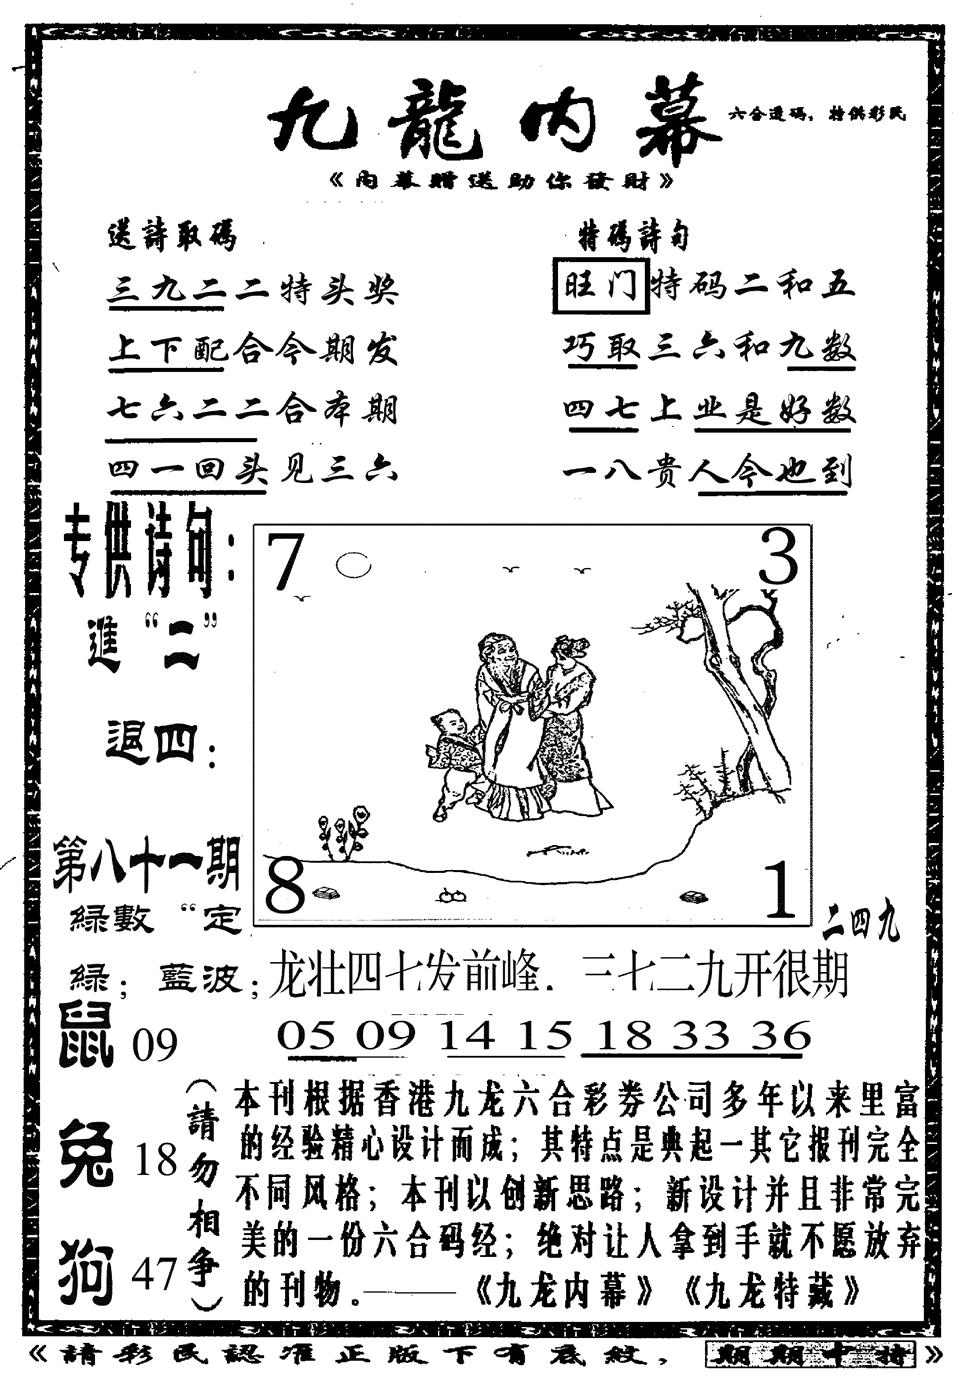 九龍内幕
六合透码，特供彩民
《内幕贈送助你發財》
送詩取碼
三九二二特头奖
上下配合今期发
七六二二合本期
四一回头见三六
特碼詩句
旺门特码二和五
巧取三六和九数
四七上业是好数
一八贵人今也到
专供诗句：
進“二”
退四：
第八十一期
緑數“定
緑；藍波；
7 3
8 1
二四九
龙壮四七发前峰．三七二九开很期
05 09 14 15 18 33 36
鼠 09
兔 18
狗 47
（請勿相争）
本刊根据香港九龙六合彩券公司多年以来里富
的经验精心设计而成；其特点是典起一其它报刊完全
不同风格；本刊以创新思路；新设计并且非常完
美的一份六合码经；绝对让人拿到手就不愿放弃
的刊物。——《九龙内幕》《九龙特藏》
《請彩民認准正版下有底紋，期期中特》